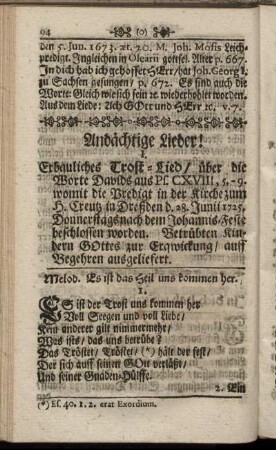 94 (0)
den 5. Jun. 1673. æt. 20. M. Joh. Mosis Leich-
predigt. Ingleichen in Olearii gottsel. Alter p. 667.
In dich hab ich gehoffet HErr/ hat Joh. Georg I.
zu Sachsen gesungen/ p. 672. Es sind auch die
Worte: Gleich wie sich sein ꝛc. wiederhohlet worden.
Aus dem Liede: Ach GOtt und HErr ꝛc. v. 7.
Andächtige Lieder!
I.
Erbauliches Trost-Lied/ über die
Worte Davids aus Ps. CXVIII, 5.-9.
womit die Predigt in der Kirche zum
H. Creutz in Dresden d. 28. Junii 1725.
Donnerstags nach dem Johannis-Feste
beschlossen worden. Betrübten Kin-
dern GOttes zur Erqwickung/ auff
Begehren ausgeliefert.
Melod. Es ist das Heil uns kommen her.
1.
ES ist der Trost uns kommen her
Voll Seegen und voll Liebe/
Kein anderer gilt nimmermehr/
Was ists/ das uns betrübe?
Das Tröstet/ Tröstet/ (*) hält der fest/
Der sich auff seinen GOtt verläst/
Und seiner Gnaden-Hülffe.
2. Ein
(*) Es. 40. 1. 2. erat Exordium.